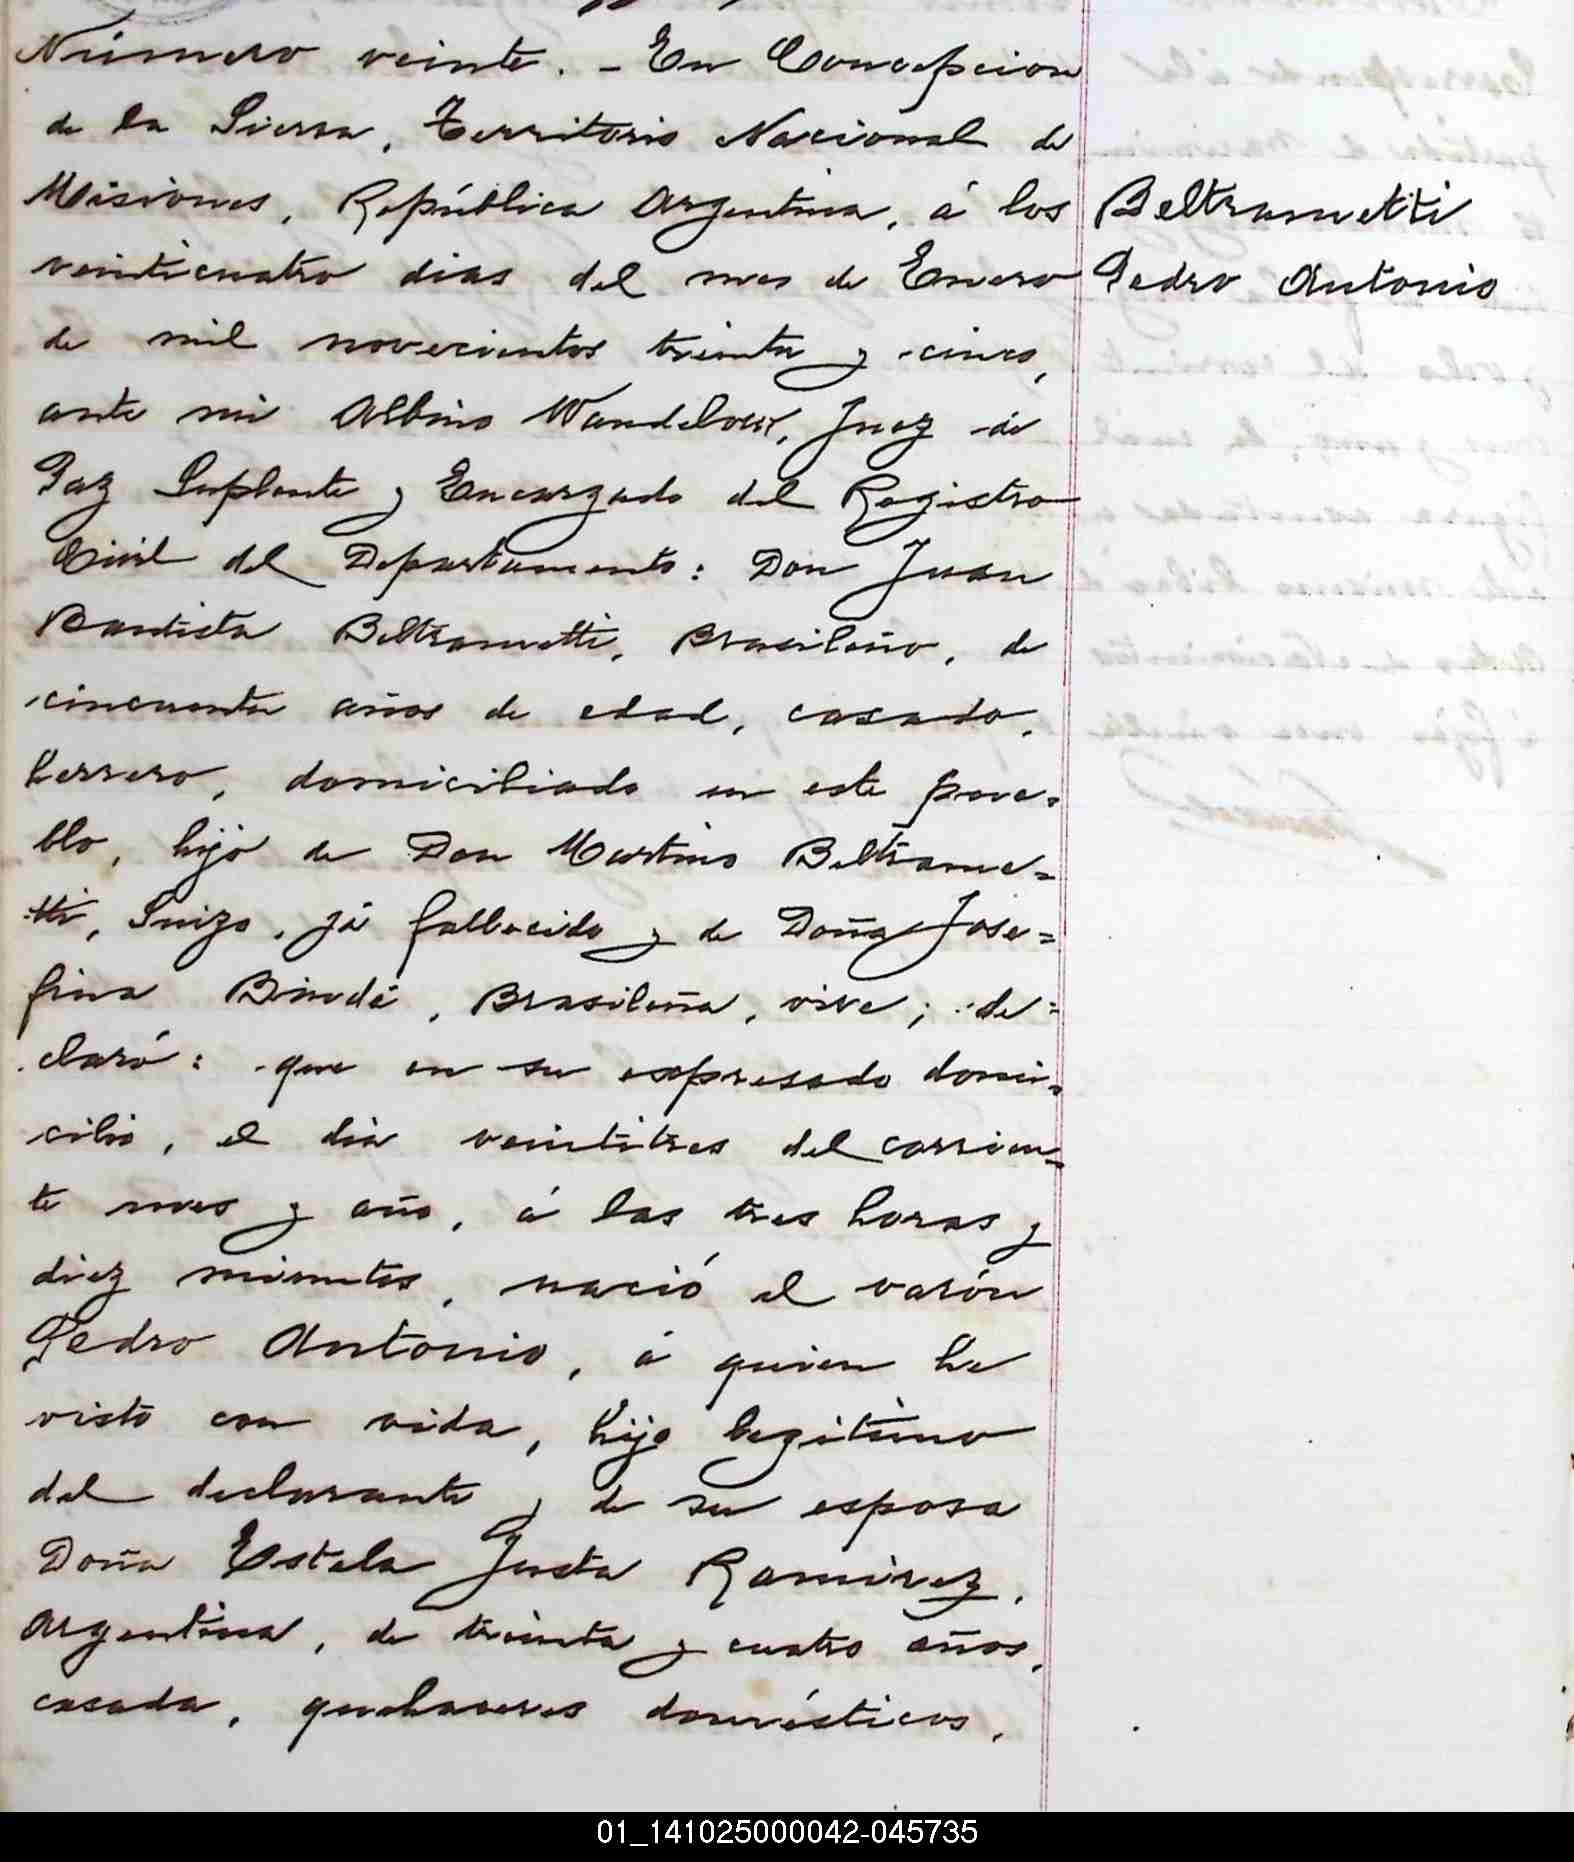 Número veinte. - En Concepcion
de la Sierra, Territorio Nacional de
Misiones, República Argentina, á los
veinticuatro dias del mes de Enero
de mil novecientos treinta y cinco,
ante mi Albino Wandelow, Juez de
Paz Suplente y Encargado del Registro
Civil del Departamento: Don Juan
Bautista Beltrametti, Brasileño, de
cincuenta años de edad, casado,
herrero, domiciliado en este pue=
blo, hijo de Don Martino Beltrame=
tti, Suizo, já fallecido y de Doña Jose=
fina Bindé, Brasileña, vive; de=
claró: que en su expresado domi=
cilio, el dia veintitres del corrien=
te mes y año, á las tres horas y
diez minutos, nació el varón
Pedro Antonio, á quien he
visto con vida, hijo legitimo
del declarante y de su esposa
Doña Estela Justa Ramirez,
Argentina, de treinta y cuatro años,
casada, quehaceres domésticos,
Beltrametti
Pedro Antonio
01_141025000042-045735